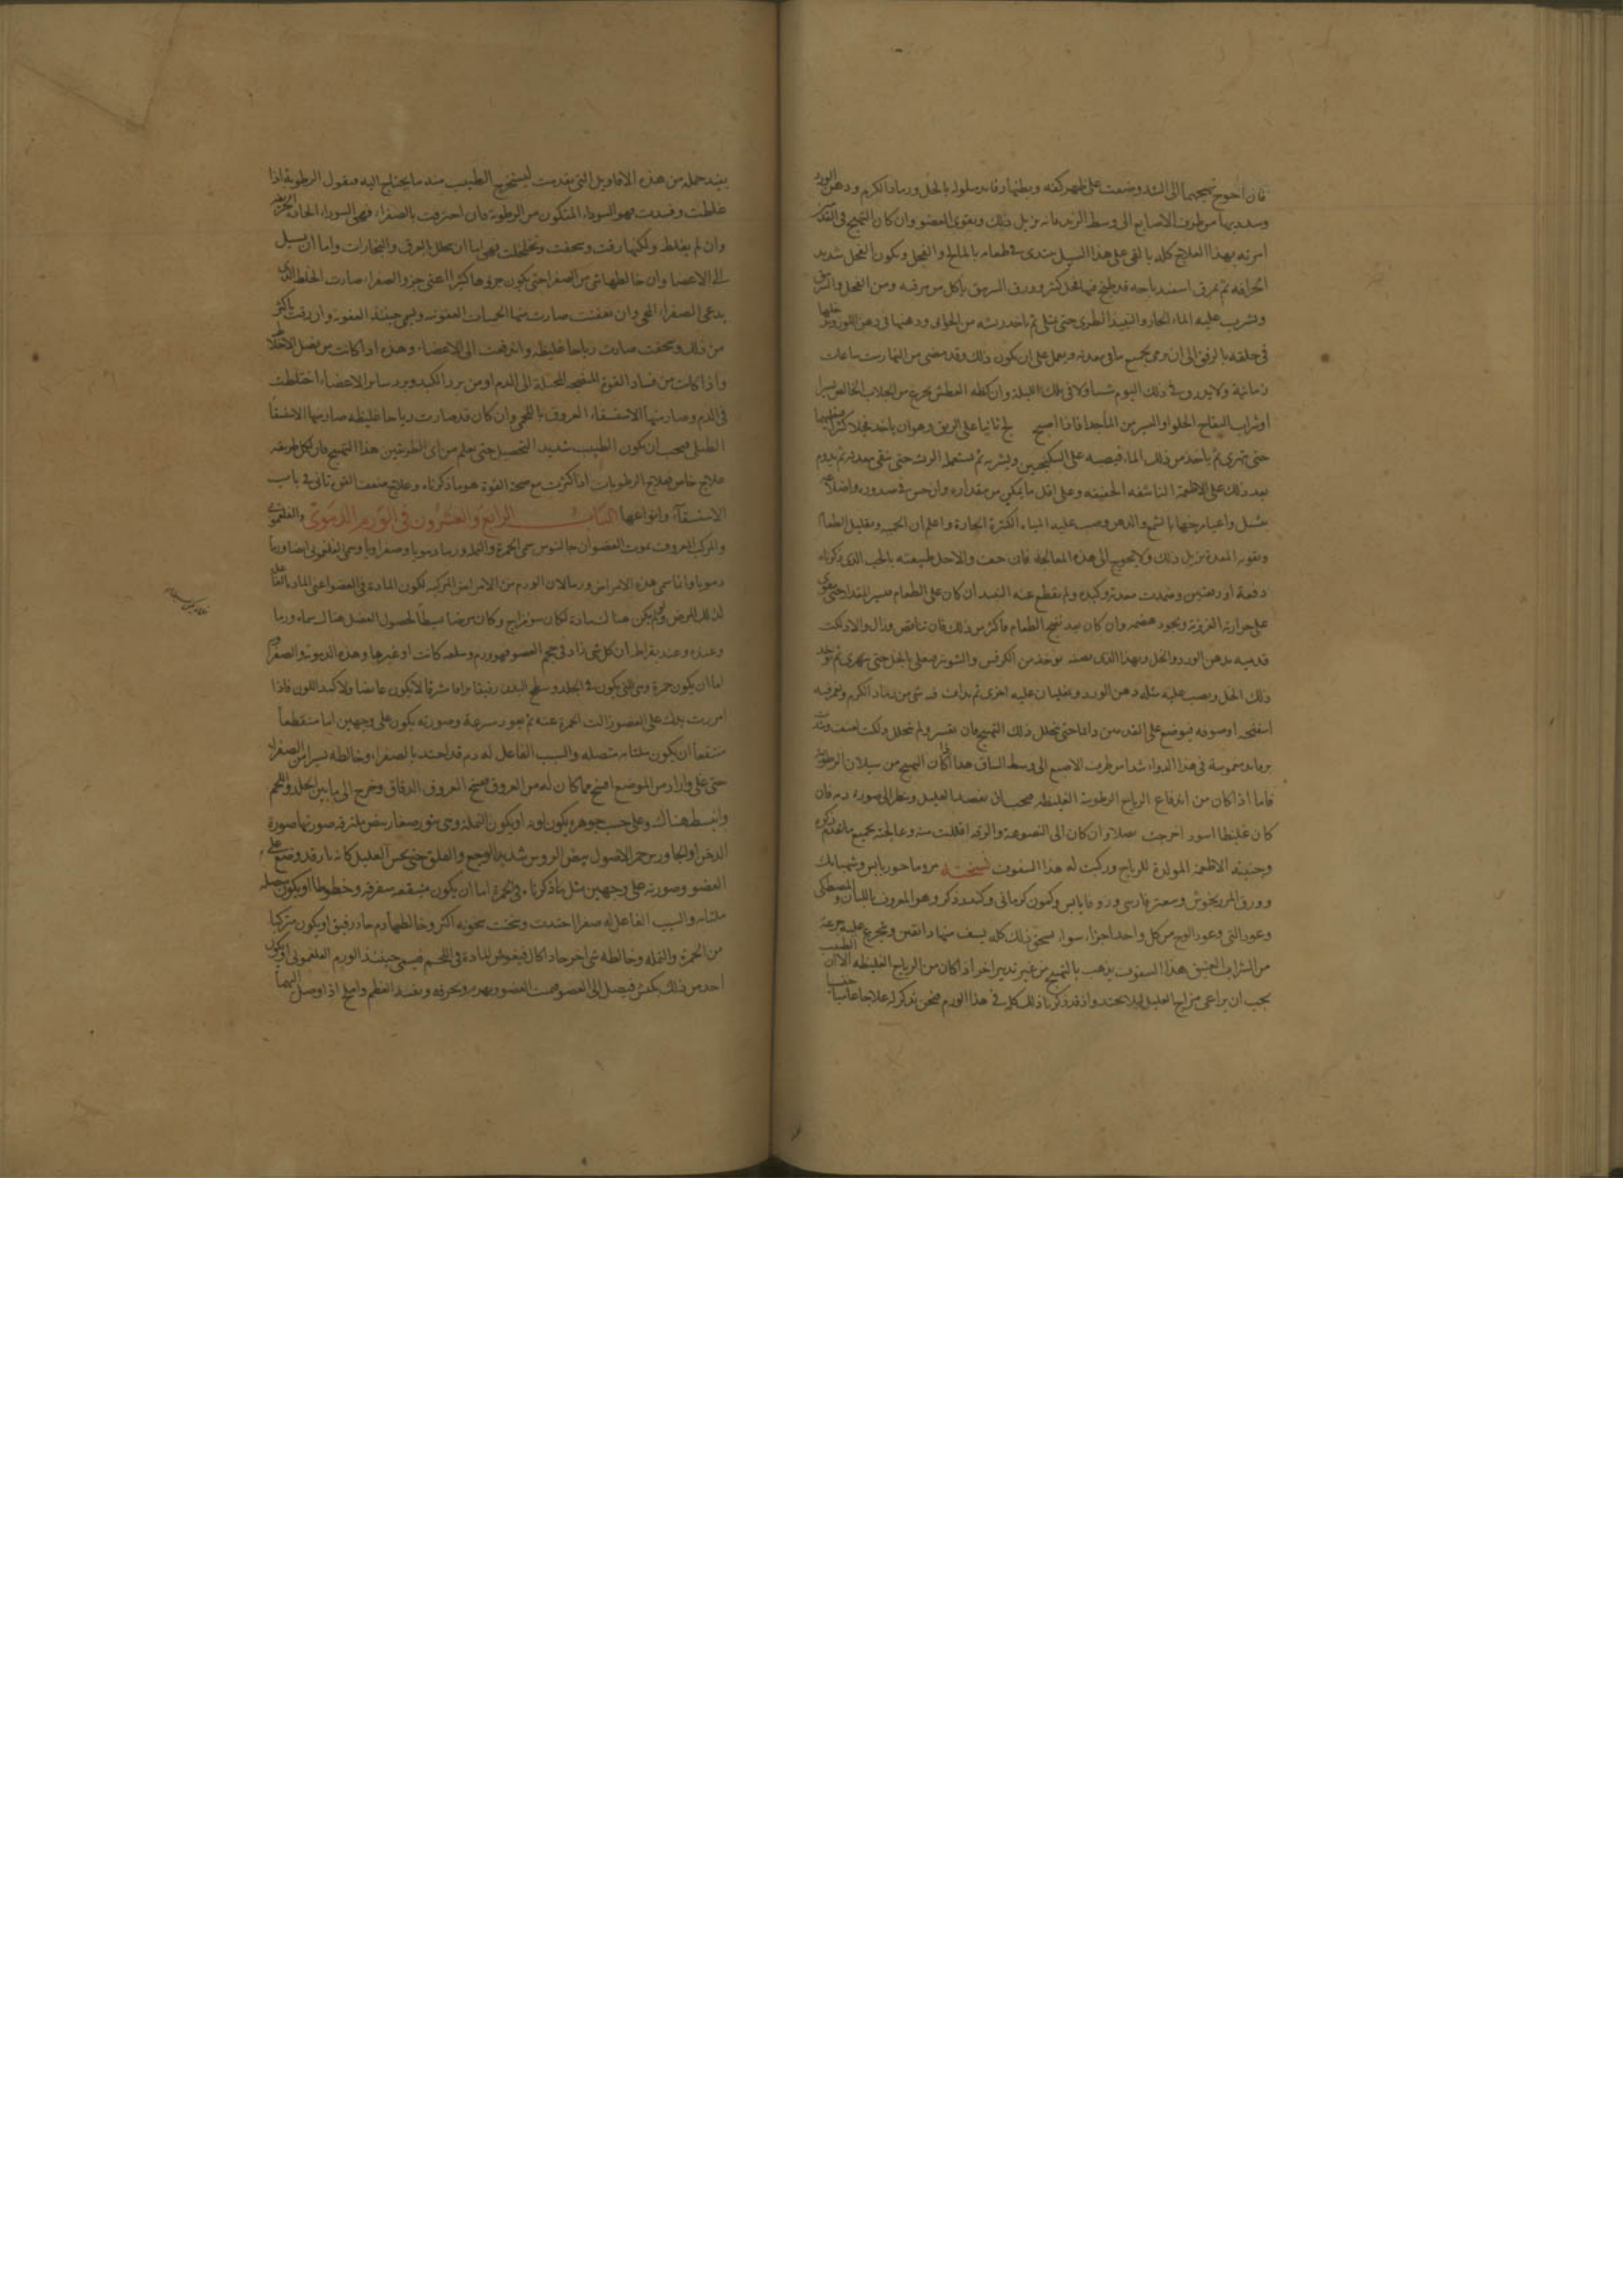 فان احوج تهيجهما الى الشد وضعت على ظهر كفه وبطنها رفايد مبلولة بالخل ورماد الكرم ودهن الورد
وشددتها من طرف الاصابع الى وسط الزند فانه يزيل ذلك ويقوى العضو وان كان التهيج فى القدمين
امرته بهذا العلاج كله بالقى على هذا السبيل يبتدى فى طعامه بالمالح والفجل ويكون الفجل شديد
الحرافة ثم بمرق اسفيدباجه قد طبخ فيها فجل كثير وورق السرمق ياكل من مرقه ومن الفجل والسرمق
ويشرب عليه الماء الحار والنبيذ الطرى حتى يمتلى ثم ياخذ ريشه من الخوافى ودهنها فى دهن اللوز ويدخلها
فى حلقه بالرفق الى ان يرمى بجميع ما فى معدته ويعمل على ان يكون ذلك وقد مضى من النهار ست ساعات
زمانية ولا يذوق فى ذلك اليوم شيئا ولا فى تلك الليلة وان كظه العطش تجرع من الجلاب الخالص يسيرا
او شراب التفاح الحلو او اليسير من الماء جدا فاذا اصبح عالج ثانيا على الريق وهو ان ياخذ فجلا كثيرا فيطبخها
حتى تهرى ثم ياخذ من ذلك الماء فيصبه على السكنجبين ويشربه ثم يستعمل الريشة حتى ينقى معدته ثم يدوم
بعد ذلك على الاطعمة الناشفة الخفيفة وعلى اقل ما يمكن من مقداره وان حس فى صدوره واضلاعه
بثقل واعياء مرخها بالشمع والدهن وصب عليه المياه الكثيرة الحارة واعلم ان الحمية وتقليل الطعام
وتقوية المعدة يزيل ذلك ولا يحوج الى هذه المعالجة فان خفت والا حل طبيعته بالحب الذى ذكرناه
دفعة او دفعتين وضمدت معدته وكبده ولم يقطع عنه النبيذ ان كان على الطعام يسير المقدار حتى يقوى
على حرارته الغريزية ويجود هضمه وان كان بعد نضج الطعام فاكثر من ذلك فان تناقص وزال والا دلكت
قدميه بدهن الورد والخل وبهذا الذى نصفه يوخذ من الكرفس والشونيز فيغلى بالخل حتى يتهرى ثم يوخذ
ذلك الخل ويصب عليه مثله دهن الورد ويغليان غلية اخرى ثم يداف فيه شى من رماد الكرم وتغمر فيه
اسفنجة او صوفة فيوضع على القدمين دائما حتى يتحلل ذلك التهيج فان تعسر ولم يتحلل دلكت
برفايد مغموسة فى هذا الدواء شدا من طرف الاصبع الى وسط الساق هذا اذا كان التهيج من سيلان الرطوبة
فاما اذا كان من اندفاع الرياح الرطوبية الغليظة فيجب ان تفصد العليل وينظر الى صورة دمه فان
كان غليظا اسود اخرجت وان كان الى النصوعة والرقة اقللت منه وعالجته بجميع ما تقدم ذكره
وجنبته الاطعمة المولدة للرياح وركبت له هذا السفوف نسخته مروماحوز يابس وشهبانك
وورق المرزنجوش وسعتر فارسى وزوفا يابس وكمون كرمانى وكندر ذكر وهو المعروف باللبان ومصطكى
وعود النى وعود الوج من كل واحد اجزاء سواء يسحق ذلك كله يسف منها دانقين ويتجرع عليه جرعة
من الشراب العتيق فهذا السفوف يذهب بالتهيج من غير تدبير اخر اذا كان من الرياح الغليظة الا ان الطبيب
يجب ان يراعى مزاج العليل ليلا يحتد واذ قد ذكرنا ذلك كله فى هذا الورم فنحن نذكر له علاجا
بعد جملة من هذه الاقاويل التى تقدمت ليستخرج الطبيب منه ما يحتاج اليه فنقول الرطوبة اذا
غلظت وفسدت فهو السوداء المتكون من الرطوبة فان احترقت بالصفراء فهى السوداء الحادة الحريفة
وان لم يغلظ ولكنها رقت وسخفت وتخلخلت فهى اما ان يتحلل بالعرق والبخارات واما ان يسيل
الى الاعضا وان خالطها شى من الصفرا حتى يكون جزوها كثيرا اعنى جزو الصفراء صارت الخلط الذى
يدعى الصفراء المحى وان تعفنت صارت منها الحميات العفونه ويسمى حينئذ العفونة وان رقت باكثر
من ذلك وسخفت صارت رياحا غليظة واندفعت الى الاعضاء وهذه اذا كانت من فضل الاخلاط
واذا كانت من فساد القوة المنضجة المحيلة الى الدم او من برد الكبد وبرد ساير الاعضاء اختلطت
فى الدم وصار منها الاستسقاء المعروف باللحمى وان كان قد صارت رياحا غليظه صار منها الاستسقا
الطبلى فيجب ان يكون الطبيب شديد التحصيل حتى يعلم من اى الطريقين هذا التهيج فان لكل طريقه
علاج خاص فعلاج الرطوبات اذا كثرت مع صحة القوة هو ما ذكرناه وعلاج ضعف القوى ياتى فى باب
الاستسقاء وانواعها الباب الرابع والعشرون فى الورم الدموى والفلغمونى
والمركب المعروف بموت العضو ان جالينوس سمى الحمرة والنملة ورما دمويا وصفراويا وسمى الفلغمونى ايضا ورما
دمويا وانما سمى هذه الامراض ورما لان الورم من الامراض المركبة لكون المادة فى العضو اعنى المادة الفاعلة
لذلك المرض ولو لم يكن هناك مادة لكان سوء مزاج وكان مرضا بسيطا لحصول الفضل هناك سماه ورما
وعنده وعند بقراط ان كل شى زاد فى حجم العضو فهو ورم وسلعة كانت او غيرها وهذه الدموية والصفراوية
اما ان يكون حمرة وهى التى يكون فى الجلد وسطح البدن رقيقا واما مشرقا لا يكون غايصا ولا كمد اللون فاذا
امررت يدك على العضو زالت الحمرة عنه ثم يعود سرعة وصورته يكون على وجهين اما منقطعا
متبقعا او يكون متصلة والسبب الفاعل له دم قد احتد بالصفراء وخالطه يسير من الصفراء
حتى غلى وازاد من الموضع افتح مما كان له من العروق ففتح العروق الدقاق وخرج الى ما بين الجلد واللحم
وانبسط هناك وعلى حسب جوهره يكون لونه او يكون النملة وهى بثور صغار بيض ملتزقة صورتها صورة
الدخن والجاورس حمر الاصول بيض الروس شديد الوجع والقلق حتى يحس العليل كانه نار قد وضع على
العضو وصورته على وجهين مثل ما ذكرنا فى الحمرة اما ان يكون منبقعه متفرقه وخطوطا او يكون متصله
والسبب الفاعل له صفرا احتدت وسخنت سخونة اكثر وخالطها دم حاد رقيق او يكون متركبا
من الحمرة والنملة وخالطه شى اخر حاد اكال فيغوص المادة فى اللحم فيسمى حينئذ الورم الفلغمونى او يكون
احد من ذلك بكثير فيصل الى العضو فيميت العضو ويهريه ويحرقه ويفسد العظم والمخ اذا وصل اليهما